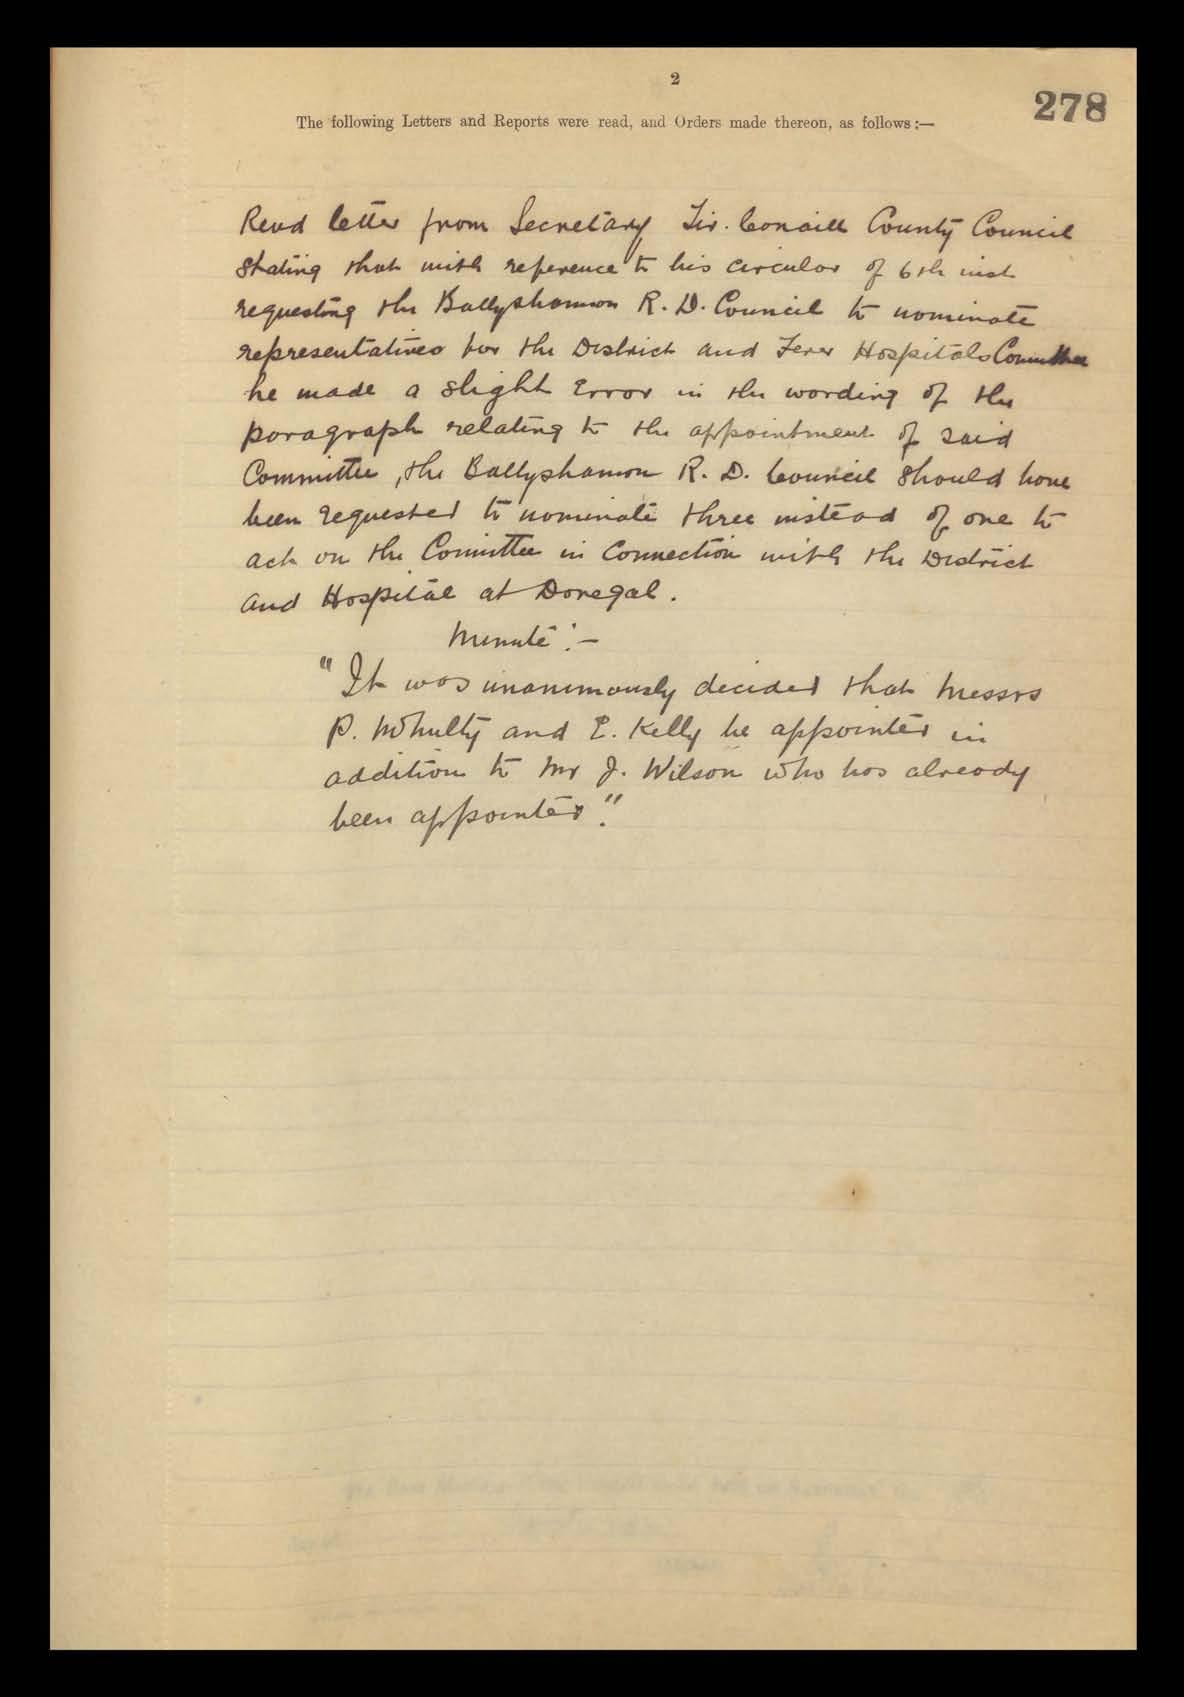 2
278
The following Letters and Reports were read, and Orders made thereon, as follows:—
Read letter from Secretary Tir. Conaill County Council
stating that with reference to his circular of 6th inst
requesting the Ballyshannon R. D. Council to nominate
representatives for the District and Fever Hospitals Committee
he made a slight error in the wording of the
paragraph relating to the appointment of said
Committee, the Ballyshannon R. D. Council should have
been requested to nominate three instead of one to
act on the Committee in Connection with the District
and Hospital at Donegal.
Minute :—
"It was unanimously decided that Messrs
P. McNulty and E. Kelly be appointed in
addition to Mr J. Wilson who has already
been appointed."